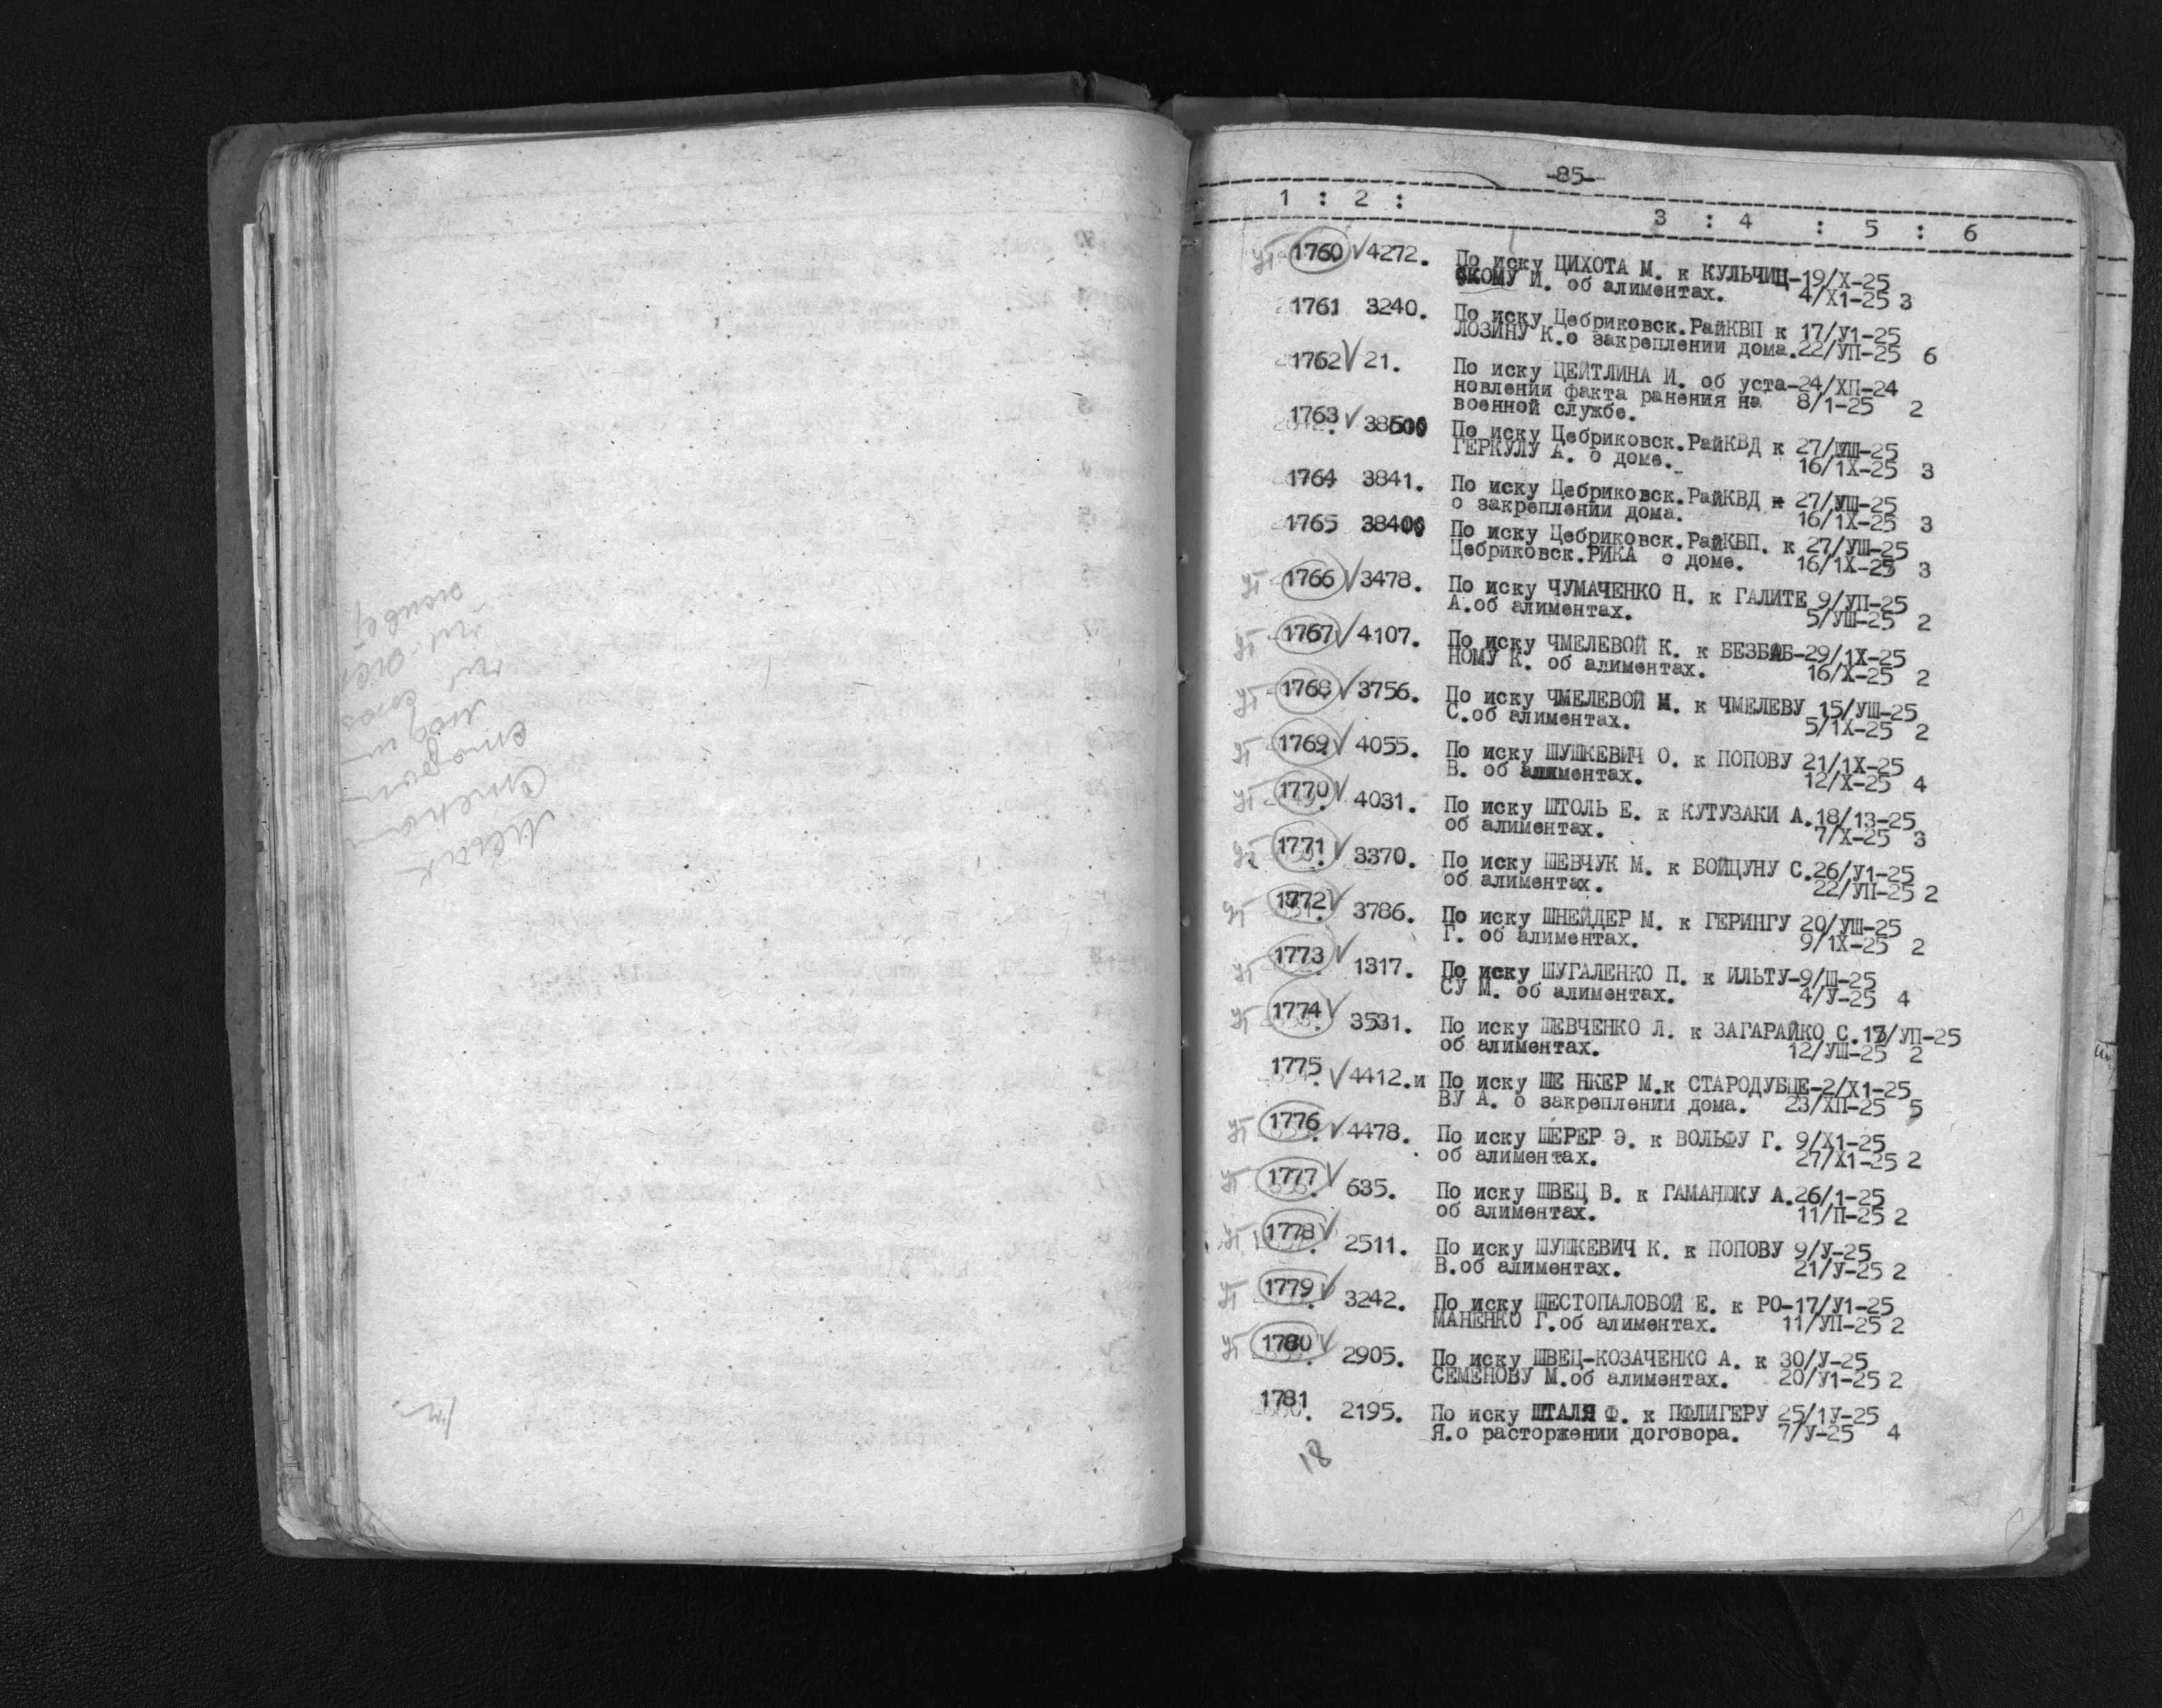 -85-
1 : 2 : 3 : 4 : 5 : 6
1760 √ 4272. По иску ЦИХОТА М. к КУЛЬЧИЦ-19/Х-25
СКОМУ И. об алиментах. 4/Х1-25 3
1761 3240. По иску Цебриковск.РайКВП к 17/У1-25
ЛОЗИНУ К.о закреплении дома.22/УП-25 6
1762 √ 21. По иску ЦЕЙТЛИНА И. об уста-24/ХП-24
новлении факта ранения на 8/1-25 2
военной службе.
1763 √ По иску Цебриковск.РайКВД к 27/УШ-25
ГЕРКУЛУ А. о доме. 16/1Х-25 3
1764 3841. По иску Цебриковск.РайКВД к 27/УШ-25
о закреплении дома. 16/1Х-25 3
1765 По иску Цебриковск.РайКВП. к 27/УШ-25
Цебриковск.РИКА о доме. 16/1Х-25 3
1766 √ 3478. По иску ЧУМАЧЕНКО Н. к ГАЛИТЕ 9/УП-25
А.об алиментах. 5/УШ-25 2
1767 √ 4107. По иску ЧМЕЛЕВОЙ К. к БЕЗБАБ-29/1Х-25
НОМУ К. об алиментах. 16/Х-25 2
1768 √ 3756. По иску ЧМЕЛЕВОЙ М. к ЧМЕЛЕВУ 15/УШ-25
С.об алиментах. 5/1Х-25 2
1769 √ 4055. По иску ШУШКЕВИЧ О. к ПОПОВУ 21/1Х-25
В. об алиментах. 12/Х-25 4
1770 √ 4031. По иску ШТОЛЬ Е. к КУТУЗАКИ А.18/13-25
об алиментах. 7/Х-25 3
1771 √ 3370. По иску ШЕВЧУК М. к БОЙЦУНУ С.26/У1-25
об алиментах. 22/УП-25 2
1772 √ 3786. По иску ШНЕЙДЕР М. к ГЕРИНГУ 20/УШ-25
Г. об алиментах. 9/1Х-25 2
1773 √ 1317. По иску ШУГАЛЕНКО П. к ИЛЬТУ-9/Ш-25
СУ М. об алиментах. 4/У-25 4
1774 √ 3531. По иску ШЕВЧЕНКО Л. к ЗАГАРАЙКО С.13/УП-25
об алиментах. 12/УШ-25 2
1775 √ 4412.и По иску ШЕ НКЕР М.к СТАРОДУБЦЕ-2/Х1-25
ВУ А. о закреплении дома. 23/ХП-25 5
1776 √ 4478. По иску ШЕРЕР Э. к ВОЛЬФУ Г. 9/Х1-25
об алиментах. 27/Х1-25 2
1777 √ 635. По иску ШВЕЦ В. к ГАМАНЮКУ А.26/1-25
об алиментах. 11/П-25 2
1778 √ 2511. По иску ШУШКЕВИЧ К. к ПОПОВУ 9/У-25
В.об алиментах. 21/У-25 2
1779 √ 3242. По иску ШЕСТОПАЛОВОЙ Е. к РО-17/У1-25
МАНЕНКО Г.об алиментах. 11/УП-25 2
1780 √ 2905. По иску ШВЕЦ-КОЗАЧЕНКО А. к 30/У-25
СЕМЕНОВУ М.об алиментах. 20/У1-25 2
1781 2195. По иску ШТАЛЯ Ф. к ПФЛИГЕРУ 25/1У-25
Я.о расторжении договора. 7/У-25 4
18